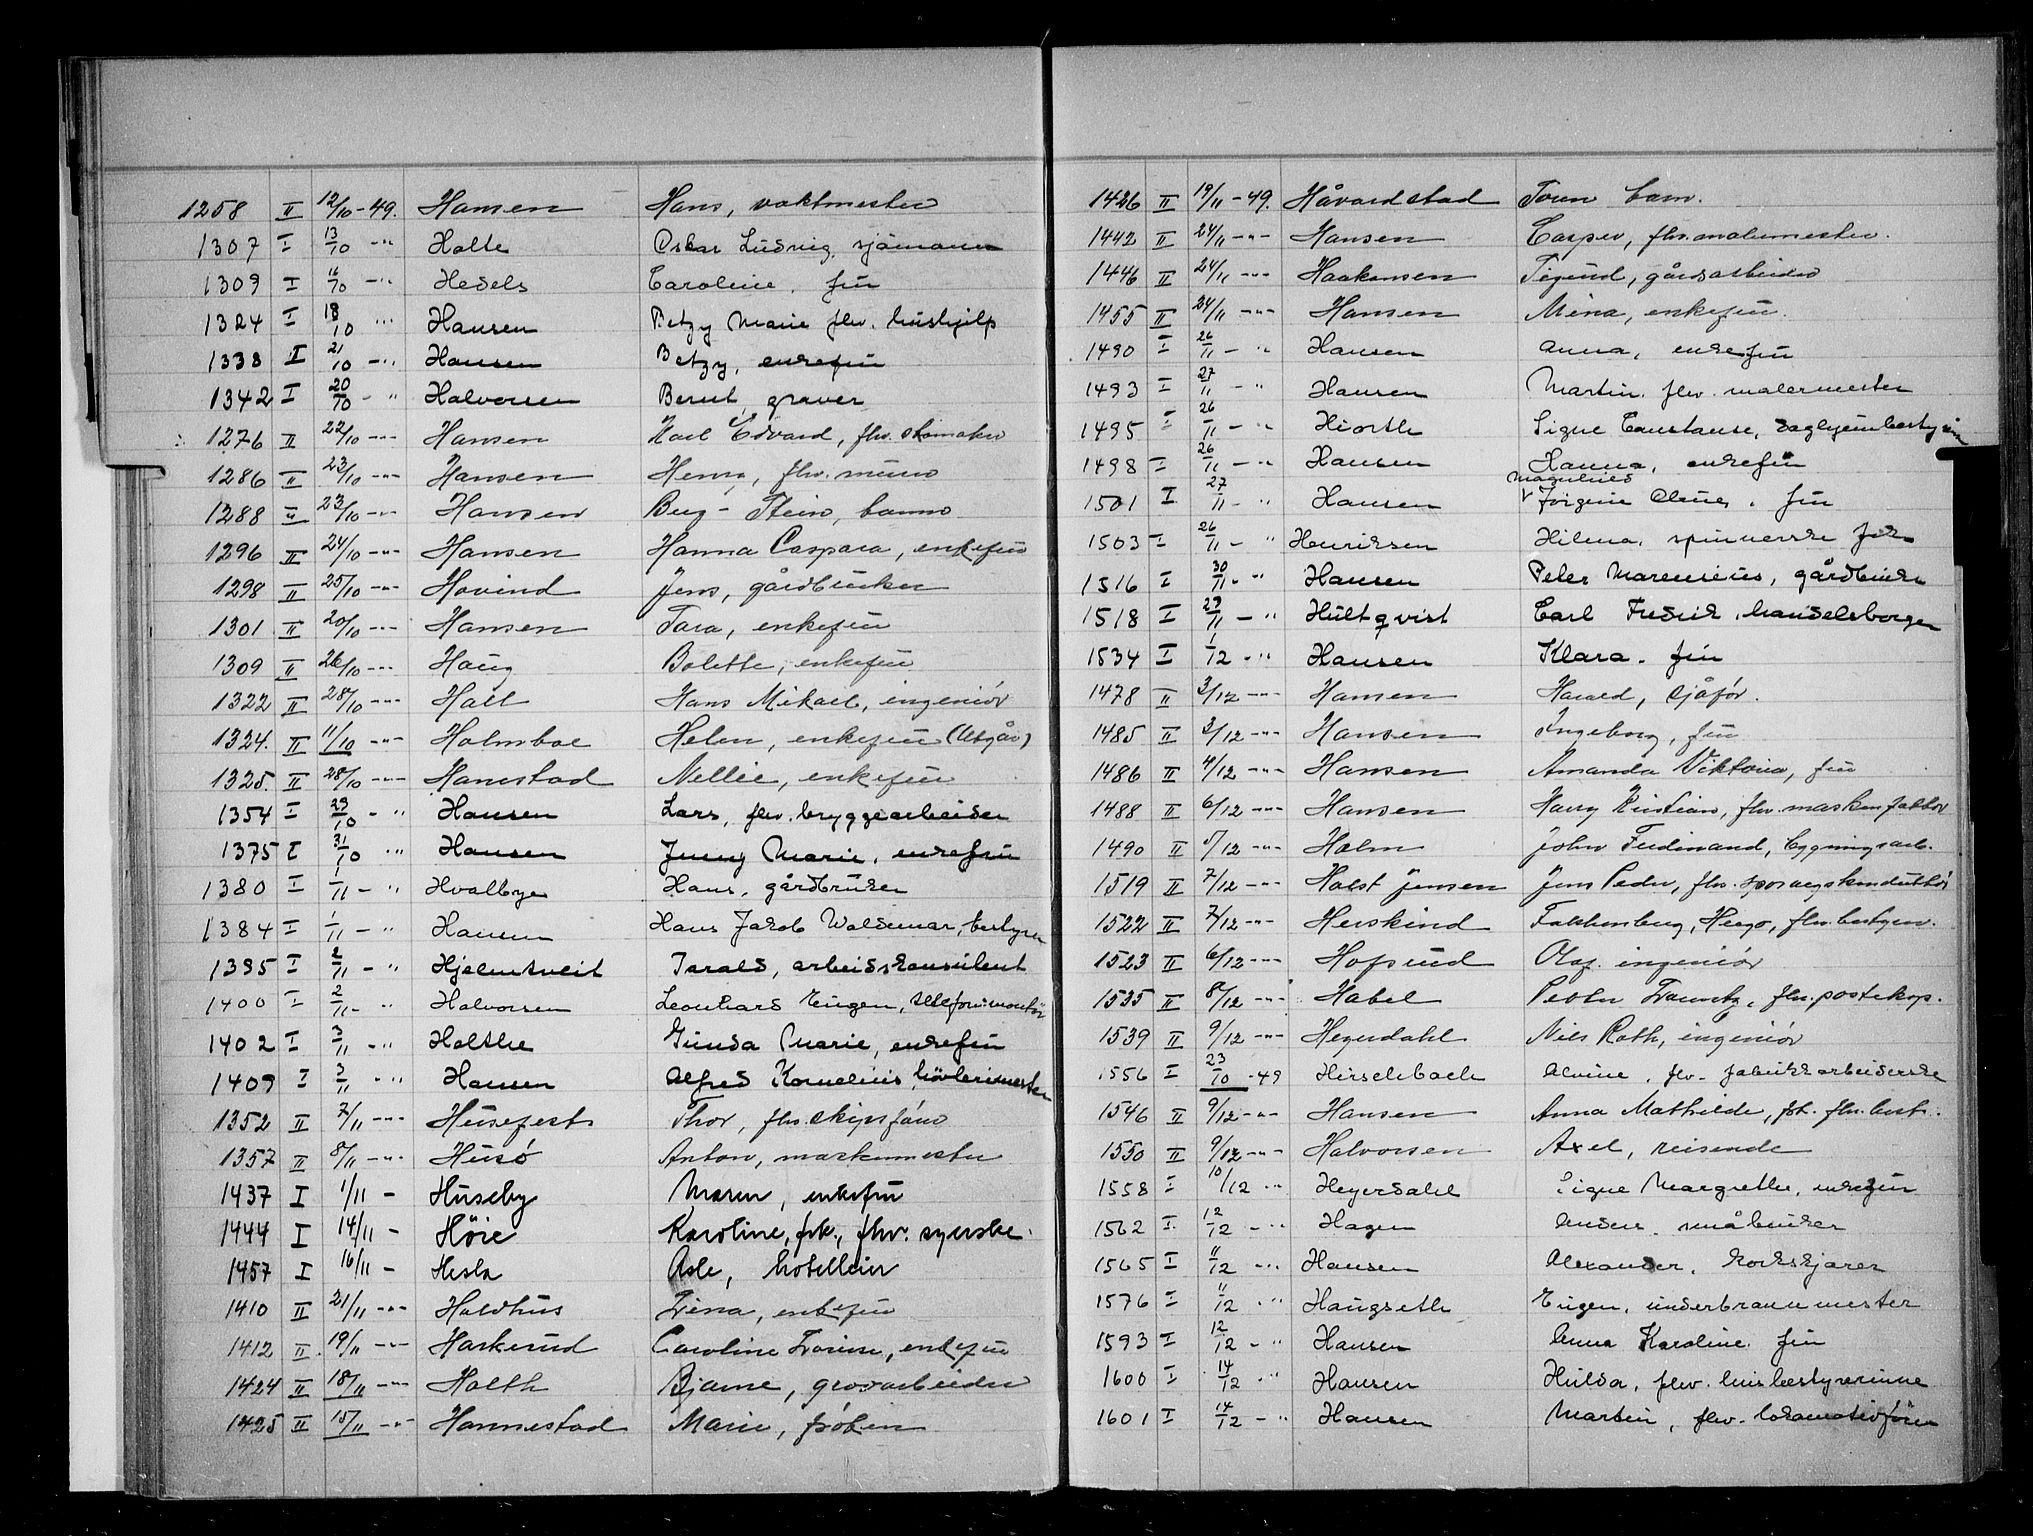 1258 II 12/10 -49. Hansen Hans, vaktmester
1307 I 13/10 -" Holte Oskar Ludvig, sjömann
1309 I 16/10 -" Hedels Caroline, fru
1324 I 18/10 " Hansen Betzy Marie flv. hushjelp
1338 I 21/10 -" Hansen Betzy, enkefru
1342 I 20/10 -" Halvorsen Bernt, graver
1276 II 22/10 -"- Hansen Karl Edvard, fhv. skomaker
1286 II 23/10 -"- Hansen Henry, fhv. murer
1288 II 23/10 -"- Hansen Berg-Stein, barn
1296 II 24/10 -"- Hansen Hanna Caspara, enkefru
1298 II 25/10 -"- Hovind Jens, gårdbruker
1301 II 20/10 -"- Hansen Tara, enkefru
1309 II 26/10 -"- Haug Bolette, enkefru
1322 II 28/10 -"- Hall Hans Mikael, ingeniör
1324. II 11/10 -"- Holmboe Helen, enkefru (Utgår)
1325. II 28/10 -"- Hanestad Nellie, enkefru
1354 I 29/10 -" Hansen Lars, flv. bryggearbeider
1375 I 31/10 " Hansen Jenny Marie, enkefru
1380 I 1/11 -" Hvalbye Hans, gårdbruker
1384 I 1/11 -" Hansen Hans Jakob Waldemar, bestyrer
1395 I 2/11 -" Hjelmtveit Harald, arbeidskonsulent
1400 I 2/11 -" Halvorsen Leonhard Eugen, telefonmontör
1402 I 3/11 -" Holthe Gunda Marie, enkefru
1409 I 3/11 -" Hansen Alfred Kornelius hövlerimester
1352 II 7/11 -"- Husefest Thor, fhv. skipsförer
1357 II 8/11 -"- Husö Anton, maskinmester
1437 I 1/11 - Huseby Maren, enkefru
1444 I 14/11 - Høie Karoline, frk., fhv. syerske.
1457 I 16/11 - Hesla Asle, hotelleier
1410 II 21/11 -"- Holdhus Trina, enkefru
1412 II 19/11 -"- Harkerud Caroline Lovise, enkefru
1424 II 18/11 -"- Holth Bjarne, grovarbeider
1425 II 15/11 -"- Hannestad Marie, fröken
1426 II 19/11 -49. Håvardstad Toren barn.
1442 II 24/11 -"- Hansen Casper, fhv. malermester.
1446 II 24/11 -"- Haakensen Sigurd, gårdsarbeider
1455 II 24/11 -"- Hansen Mina, enkefru.
1490 I 26/11 -" Hansen Anna, enkefru
1493 I 27/11 -" Hansen Martin, flv. malermester
1495 I 26/11 -" Hiorth Signe Constanse, daghjembestyrer
1498 I 26/11 -" Hansen Hanna, enkefru
Magnhild
1501 I 27/11 -" Hansen V Jörgine, fru
1503 I 26/11 -" Henriksen Hilena, spinnerske
1516 I 30/11 -" Hansen Peter Marensius, gårdbruker
1518 I 29/11 -" Hultqvist Carl Fredrik, handelsborger
1534 I 1/12 -" Hansen Klara. fru
1478 II 3/12 -"- Hansen Harald, sjåför.
1485 II 3/12 -"- Hansen Ingeborg, fru
1486 II 4/12 -"- Hansen Amanda Viktoria, fru
1488 II 6/12 -"- Hansen Harry Kristian, fhv. maskinfaktor
1490 II 5/12 -"- Holm John Ferdinand, bygningsarb.
1519 II 7/12 -"- Holst Jensen Jens Peder, fhv. sporvegskonduktör
1522 II 7/12 -"- Herskind Falkenberg, Hugo, fhv. bestyrer.
1523 II 6/12 -"- Hofsrud Olaf. ingeniör
1535 II 8/12 -"- Habel Peder Frantz, fhv. posteksp.
1539 II 9/12 -"- Heyerdahl Niels Roth, ingeniör
1556 I 23/10 -49 Hirschbach Alvine, flv. fabrikkarbeiderske
1546 II 9/12 -"- Hansen Anna Mathilde, frk. fhv. best.
1550 II 9/12 -"- Halvorsen Axel, reisende
1558 I 10/12 -" Heyerdahl Signe Margrethe, enkefru
1562 I 12/12 -" Hagen Anders, småbruker
1565 I 11/12 -" Hansen Alexander, korkskjærer
1576 I 11/12 -" Haugseth Eugen, underbrannmester
1593 I 12/12 -" Hansen Anna Karoline, fru
1600 I 14/12 -" Hansen Hulda, flv. husbestyrerinne
1601 I 14/12 -" Hansen Martin, flv. lokomotivförer